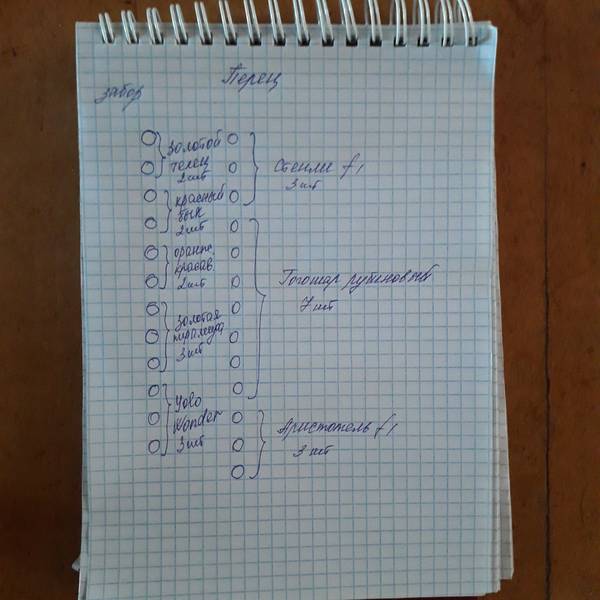 Перец
забор
Золотой
телец
2 шт
Красный
бык
2 шт
оранж.
красав.
2 шт
Золотая
пирамида
3 шт
Yolo
Wonder
3 шт
Стенли f1
3 шт
Гогошар рубиновый
7 шт
Аристотель f1
3 шт